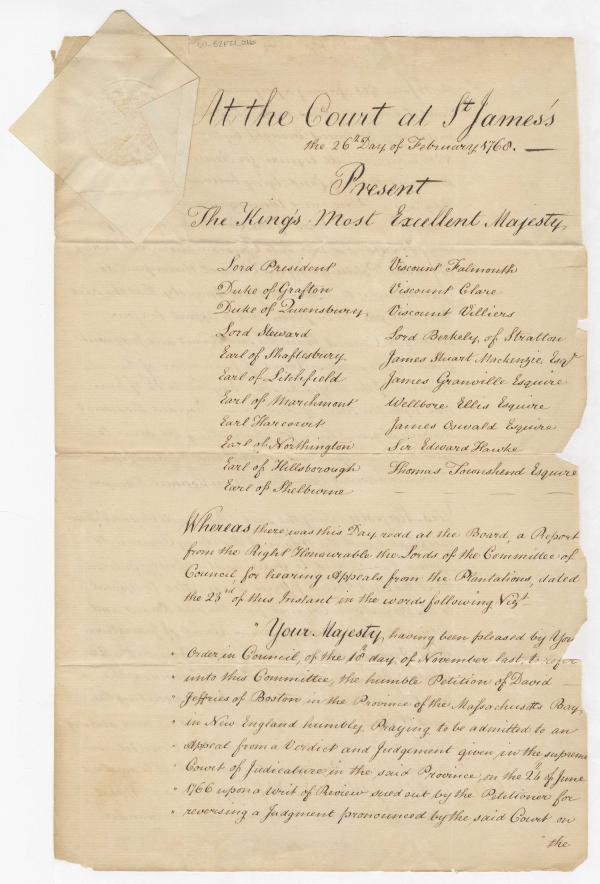 At the Court at St. James's
the 26th Day of February 1768. —
Present
The King's Most Excellent Majesty,
Lord President
Duke of Grafton
Duke of Queensbury,
Lord Steward
Earl of Shaftesbury
Earl of Litchfield
Earl of Marchmont
Earl Harcourt
Earl of Northington
Earl of Hillsborough
Earl of Shelburne
Viscount Falmouth
Viscount Clare
Viscount Villiers
Lord Berkely, of Stratton
James Stuart Mackenzie, Esqr
James Granville Esquire
Wellbore Ellis Esquire
James Oswald Esquire
Sir Edward Hawke
Thomas Townshend Esquire
Whereas there was this Day read at the Board, a Report
from the Right Honourable the Lords of the Committee of
Council, for hearing Appeals from the Plantations, dated
the 23rd of this Instant in the words following Vizt
" Your Majesty, having been pleased by You
" Order, in Council, of the 18th day, of November last, to refer
" unto this Committee, the humble Petition of David —
" Jeffries of Boston in the Province of the Massachusetts Bay,
" in New England humbly Praying to be admitted to an
" Appeal from a Verdict and Judgement given, in the supreme
" Court of Judicature in the said Province, on the 24th of June
" 1766 upon a Writ of Review sued out by the Petitioner for
" reversing a Judgment pronounced by the said Court on
" the